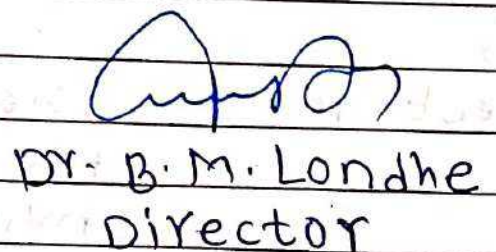 Dr. B.M. Londhe
Director